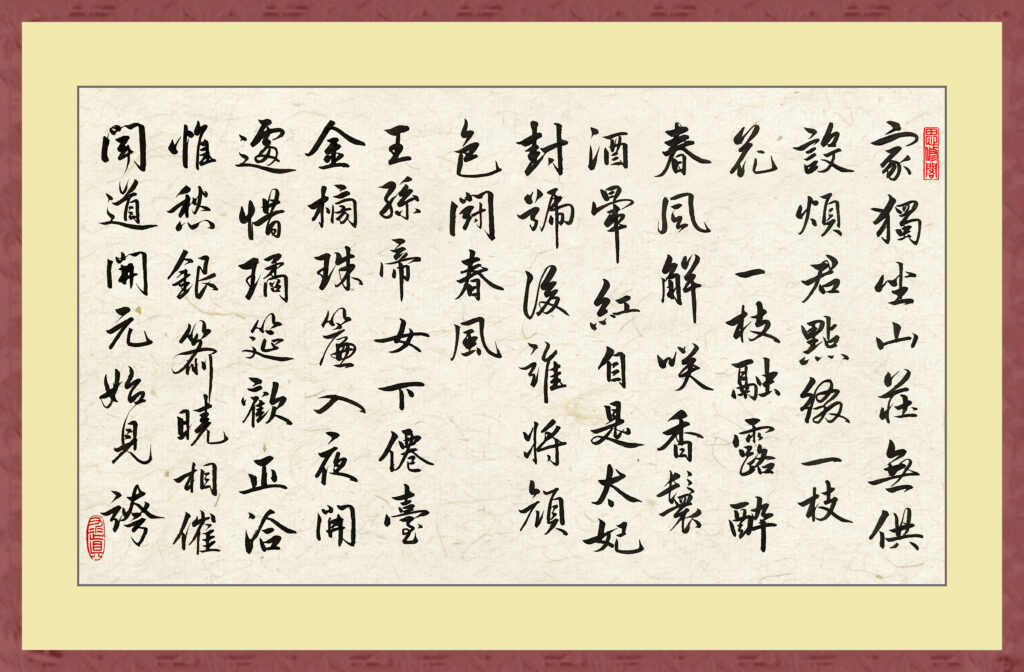 家獨坐山莊無供
設煩君點綴一枝
花 一枝融露醉
春風解咲香鬟
酒暈紅自是太妃
封號後誰將顏
色鬪春風
王孫帝女下僊臺
金榜珠簾入夜開
遽惜瓊筵歡正洽
惟愁銀箭曉相催
聞道開元始見誇